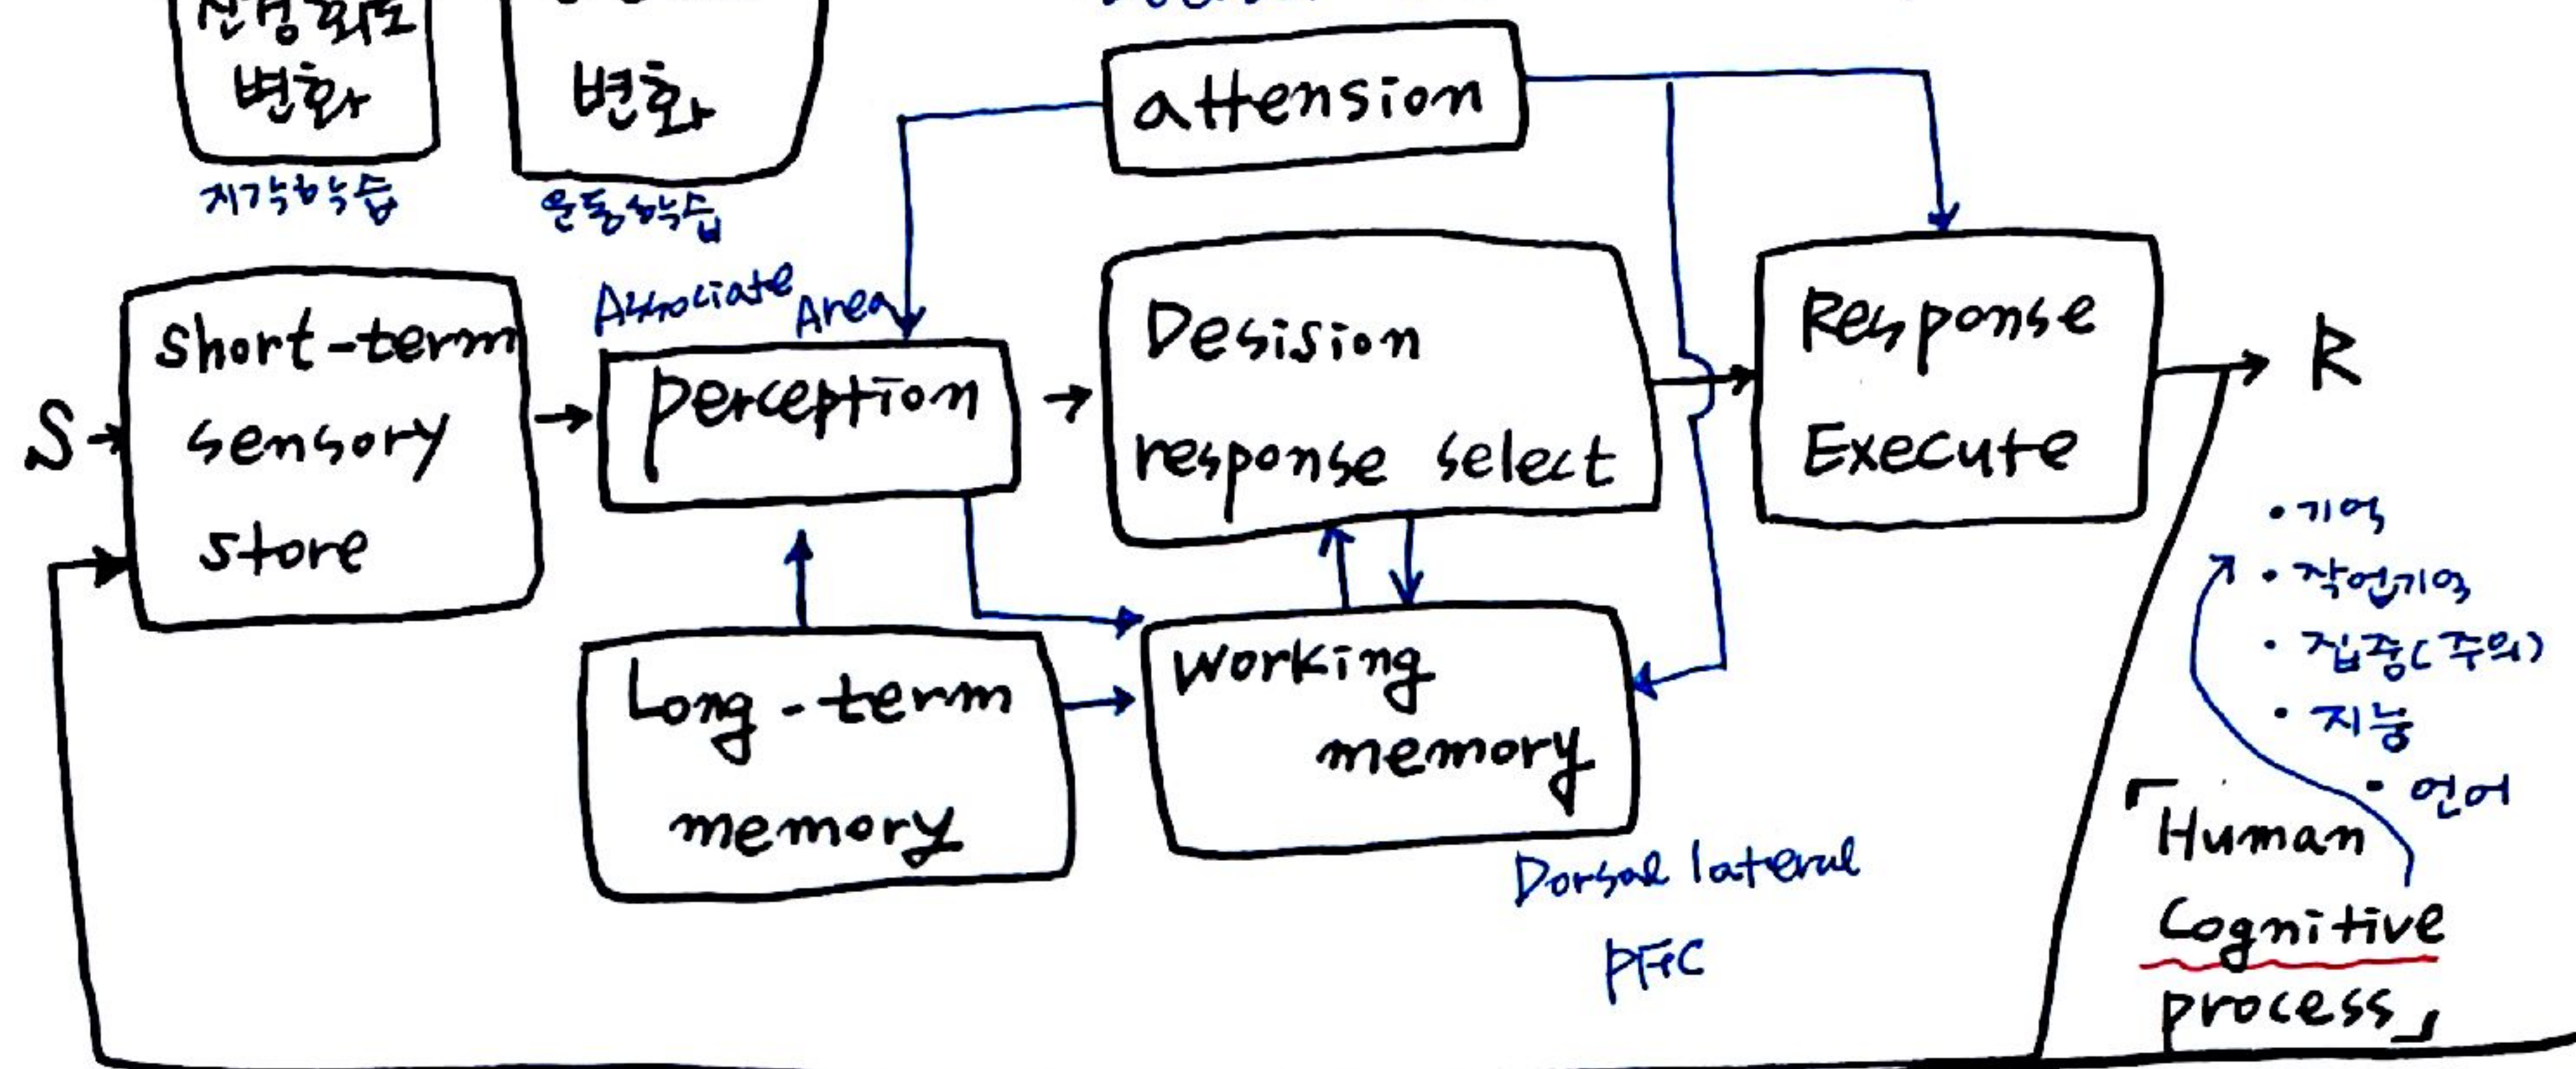 변화
변화
지각학습
운동학습
attension
Associate Area
S
short-term
sensory
store
perception
Desision
response select
Response
Execute
R
Long-term
memory
working
memory
Dorsal lateral
PFC
• 기억
• 작업기억
• 집중(주의)
• 지능
• 언어
「Human
Cognitive
process」